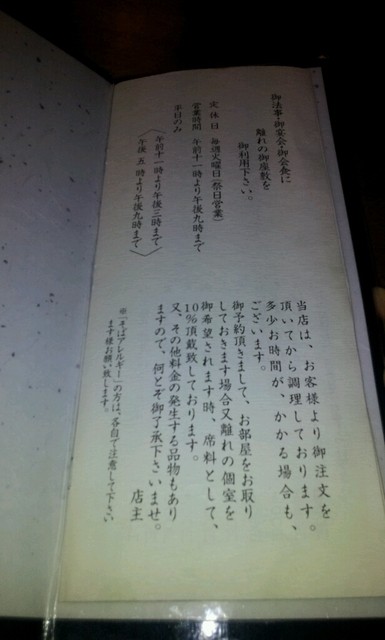 御法事・御宴会・御会食に
離れの御座敷を
御利用下さい。
定休日 毎週火曜日(祭日営業)
営業時間 午前十一時より午後九時まで
平日のみ
〈午前十一時より午後三時まで〉
〈午後 五時より午後九時まで〉
当店は、お客様より御注文を
頂いてから調理しております。
多少お時間が、かかる場合も、
ございます。
御予約頂きまして、お部屋をお取り
しておきます場合又離れの個室を
御希望されます時、席料として、
10%頂戴致しております。
又、その他料金の発生する品物もあり
ますので、何とぞ御了承下さいませ。
店主
※「そばアレルギー」の方は、各自で注意して下さい
ます様お願い致します。